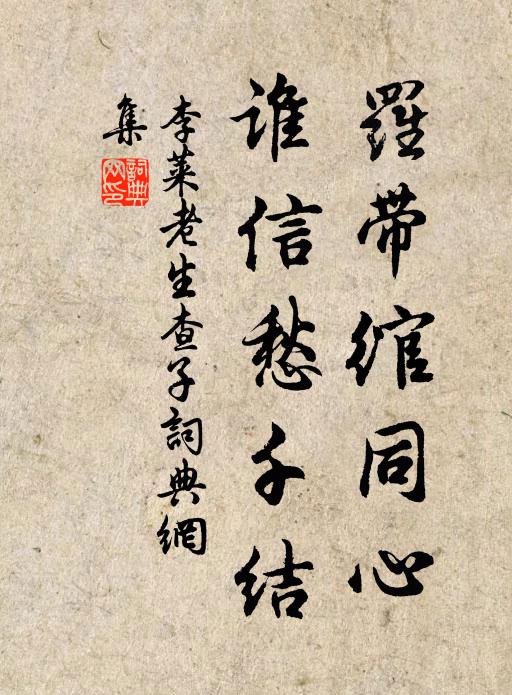 羅帶綰同心
誰信愁千結
李萊老生查子詞典網
集
詞典
网印